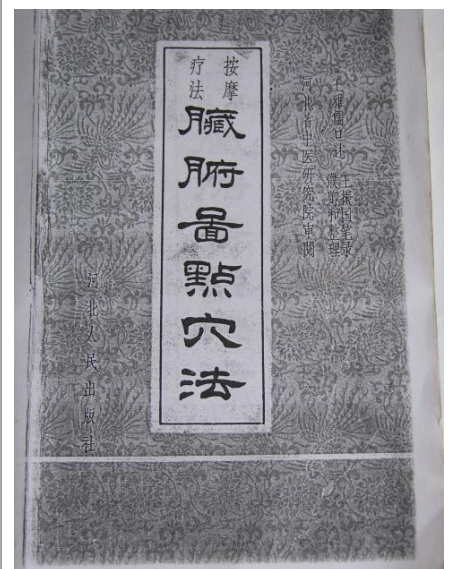 王雅儒口述
王振国笔录
濮卿和整理
河北省中医研究院审阅
按摩
疗法
臟腑圖點穴法
河北人民出版社